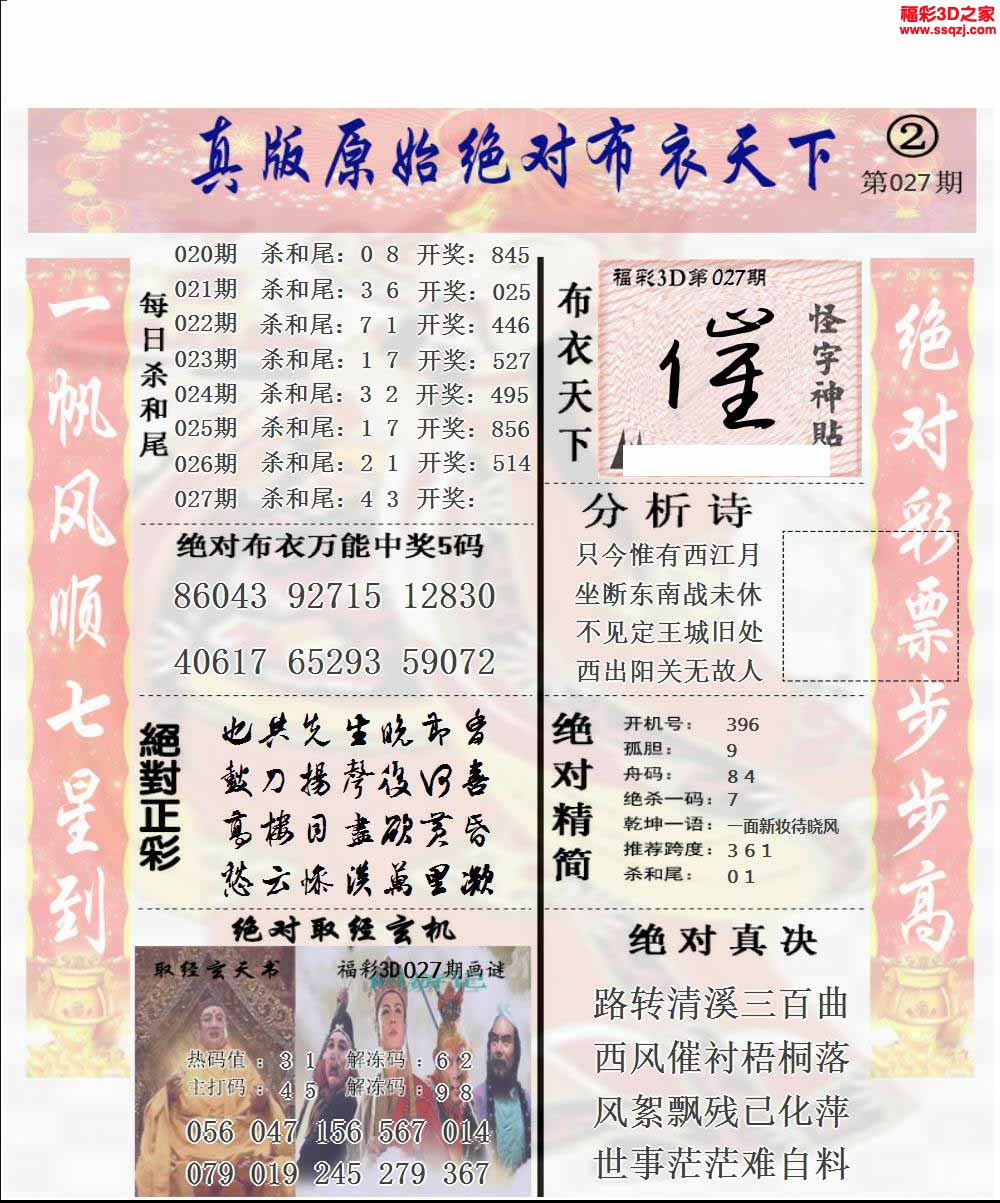 福彩3D之家
www.ssqzj.com
真版原始绝对布衣天下
②
第027期
一帆风顺七星到
每日杀和尾
020期 杀和尾：0 8 开奖：845
021期 杀和尾：3 6 开奖：025
022期 杀和尾：7 1 开奖：446
023期 杀和尾：1 7 开奖：527
024期 杀和尾：3 2 开奖：495
025期 杀和尾：1 7 开奖：856
026期 杀和尾：2 1 开奖：514
027期 杀和尾：4 3 开奖：
绝对布衣万能中奖5码
86043 92715 12830
40617 65293 59072
絕對正彩
也共先生晚節香
鼓刀揚聲復何喜
高樓目盡欲黄昏
愁云慘淡萬里凝
绝对取经玄机
取经玄天书
福彩3D027期画谜
热码值：3 1 解冻码：6 2
主打码：4 5 解冻码：9 8
056 047 156 567 014
079 019 245 279 367
布衣天下
福彩3D第027期
催
怪字神貼
分析诗
只今惟有西江月
坐断东南战未休
不见定王城旧处
西出阳关无故人
绝对精简
开机号： 396
孤胆： 9
舟码： 8 4
绝杀一码：7
乾坤一语：一面新妆待晓风
推荐跨度：3 6 1
杀和尾： 0 1
绝对真决
路转清溪三百曲
西风催衬梧桐落
风絮飘残已化萍
世事茫茫难自料
绝对彩票步步高